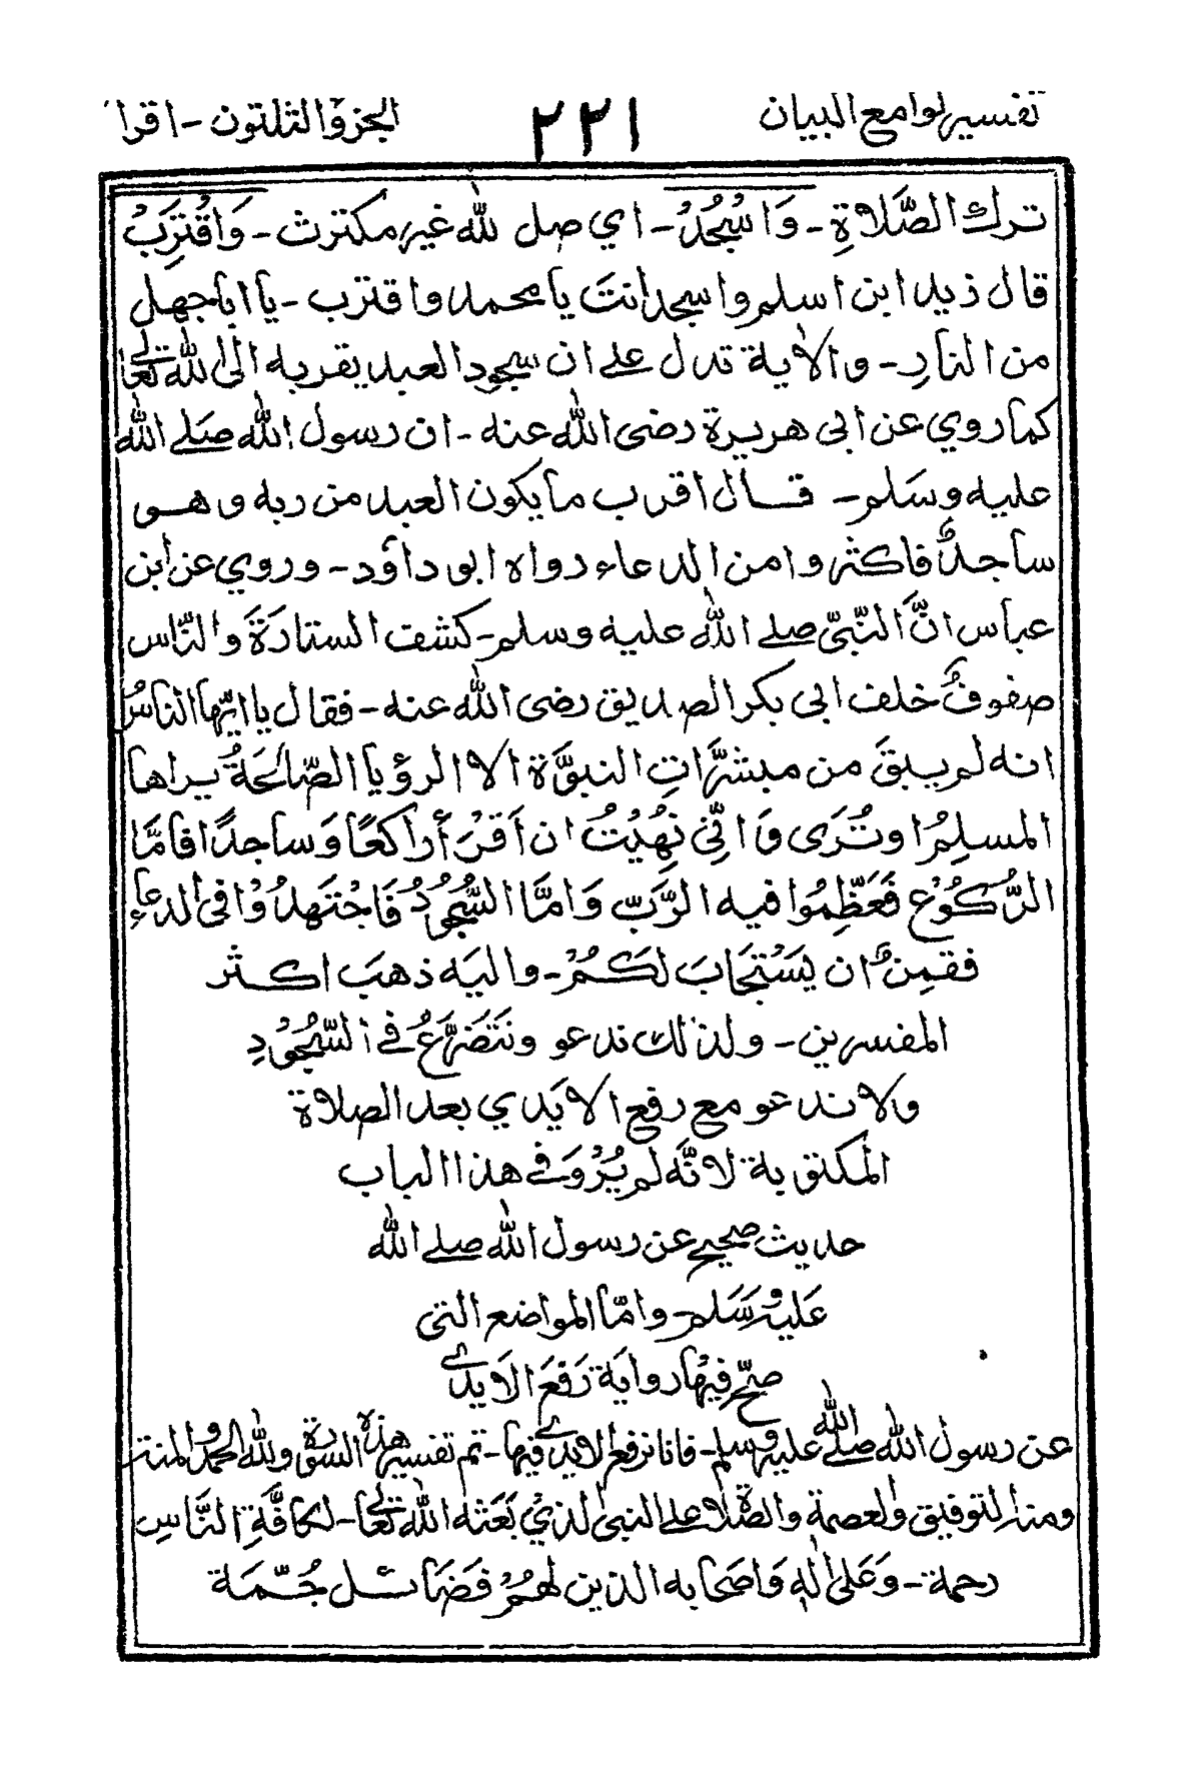 تفسير لوامع البيان ٢٢١ الجزو الثلثون - اقرا
ترك الصَّلاةِ - وَاسْجُدُ - اي صل لله غير مكترث - وَاقْتَرِبْ
قال زيد ابن اسلم واسجد انتَ يا محمد واقترب - يا ابا جهل
من النارِ - والاية تدل على ان سجود العبد يقربه الى الله تعالى
كما روي عن ابى هريرة رضى الله عنه - ان رسول الله صَلے الله
عليه وسَلم - قال اقرب ما يكون العبد من ربه وهو
ساجدٌ فاكثروا من الدعاء رواه ابو داؤد - وروي عن ابن
عباس انَّ النَّبِىّ صلے الله عليه وسلم - كشف الستارةَ والنّاس
صفوفٌ خلف ابى بكر الصديق رضى الله عنه - فقال يا ايّها الناسُ
انه لم يبقَ من مبشرَّاتِ النبوَّة الا الرؤيا الصّالحَةُ يراها
المسلِمُ او تُرَى وَانِّى نُهِيْتُ ان اَقْرَأَ راكعًا وَساجدًا فامَّا
الرُّكُوْع فَعَظِّمُوا فيه الرَّبّ وَامَّا السُّجُوْدُ فَاجْتَهِدُوْا فى الدعاء
فقمِنٌ ان يُسَتْجَابَ لَكُمْ - واليَه ذهبَ اكثر
المفسرين - ولذلك ندعو ونَتَضَرَّعُ فى السُّجُوْدِ
ولا ندعو مع رفع الايَدي بعد الصلاة
المكتوبة لانَّه لم يُرْوَ فى هذا الباب
حديث صحيح عن رسول الله صلے الله
عَليْه وَسَلم - وامّا المواضع التى
صحّ فيها رواية رَفعَ الايدى
عن رسول الله صلے الله عليه وسلم - فانا نرفع الايدى فيها - تم تفسير هذه السورة ولله الحمد والمنة
ومنه التوفيق والعصمة والصلاة على النبى الذيْ بَعَثه الله تعالى - لكافَّةِ النَّاسِ
رحمة - وَعَلى اٰلهٖ وَاصحابه الذين لهمْ فَضَائل جُمّمَة